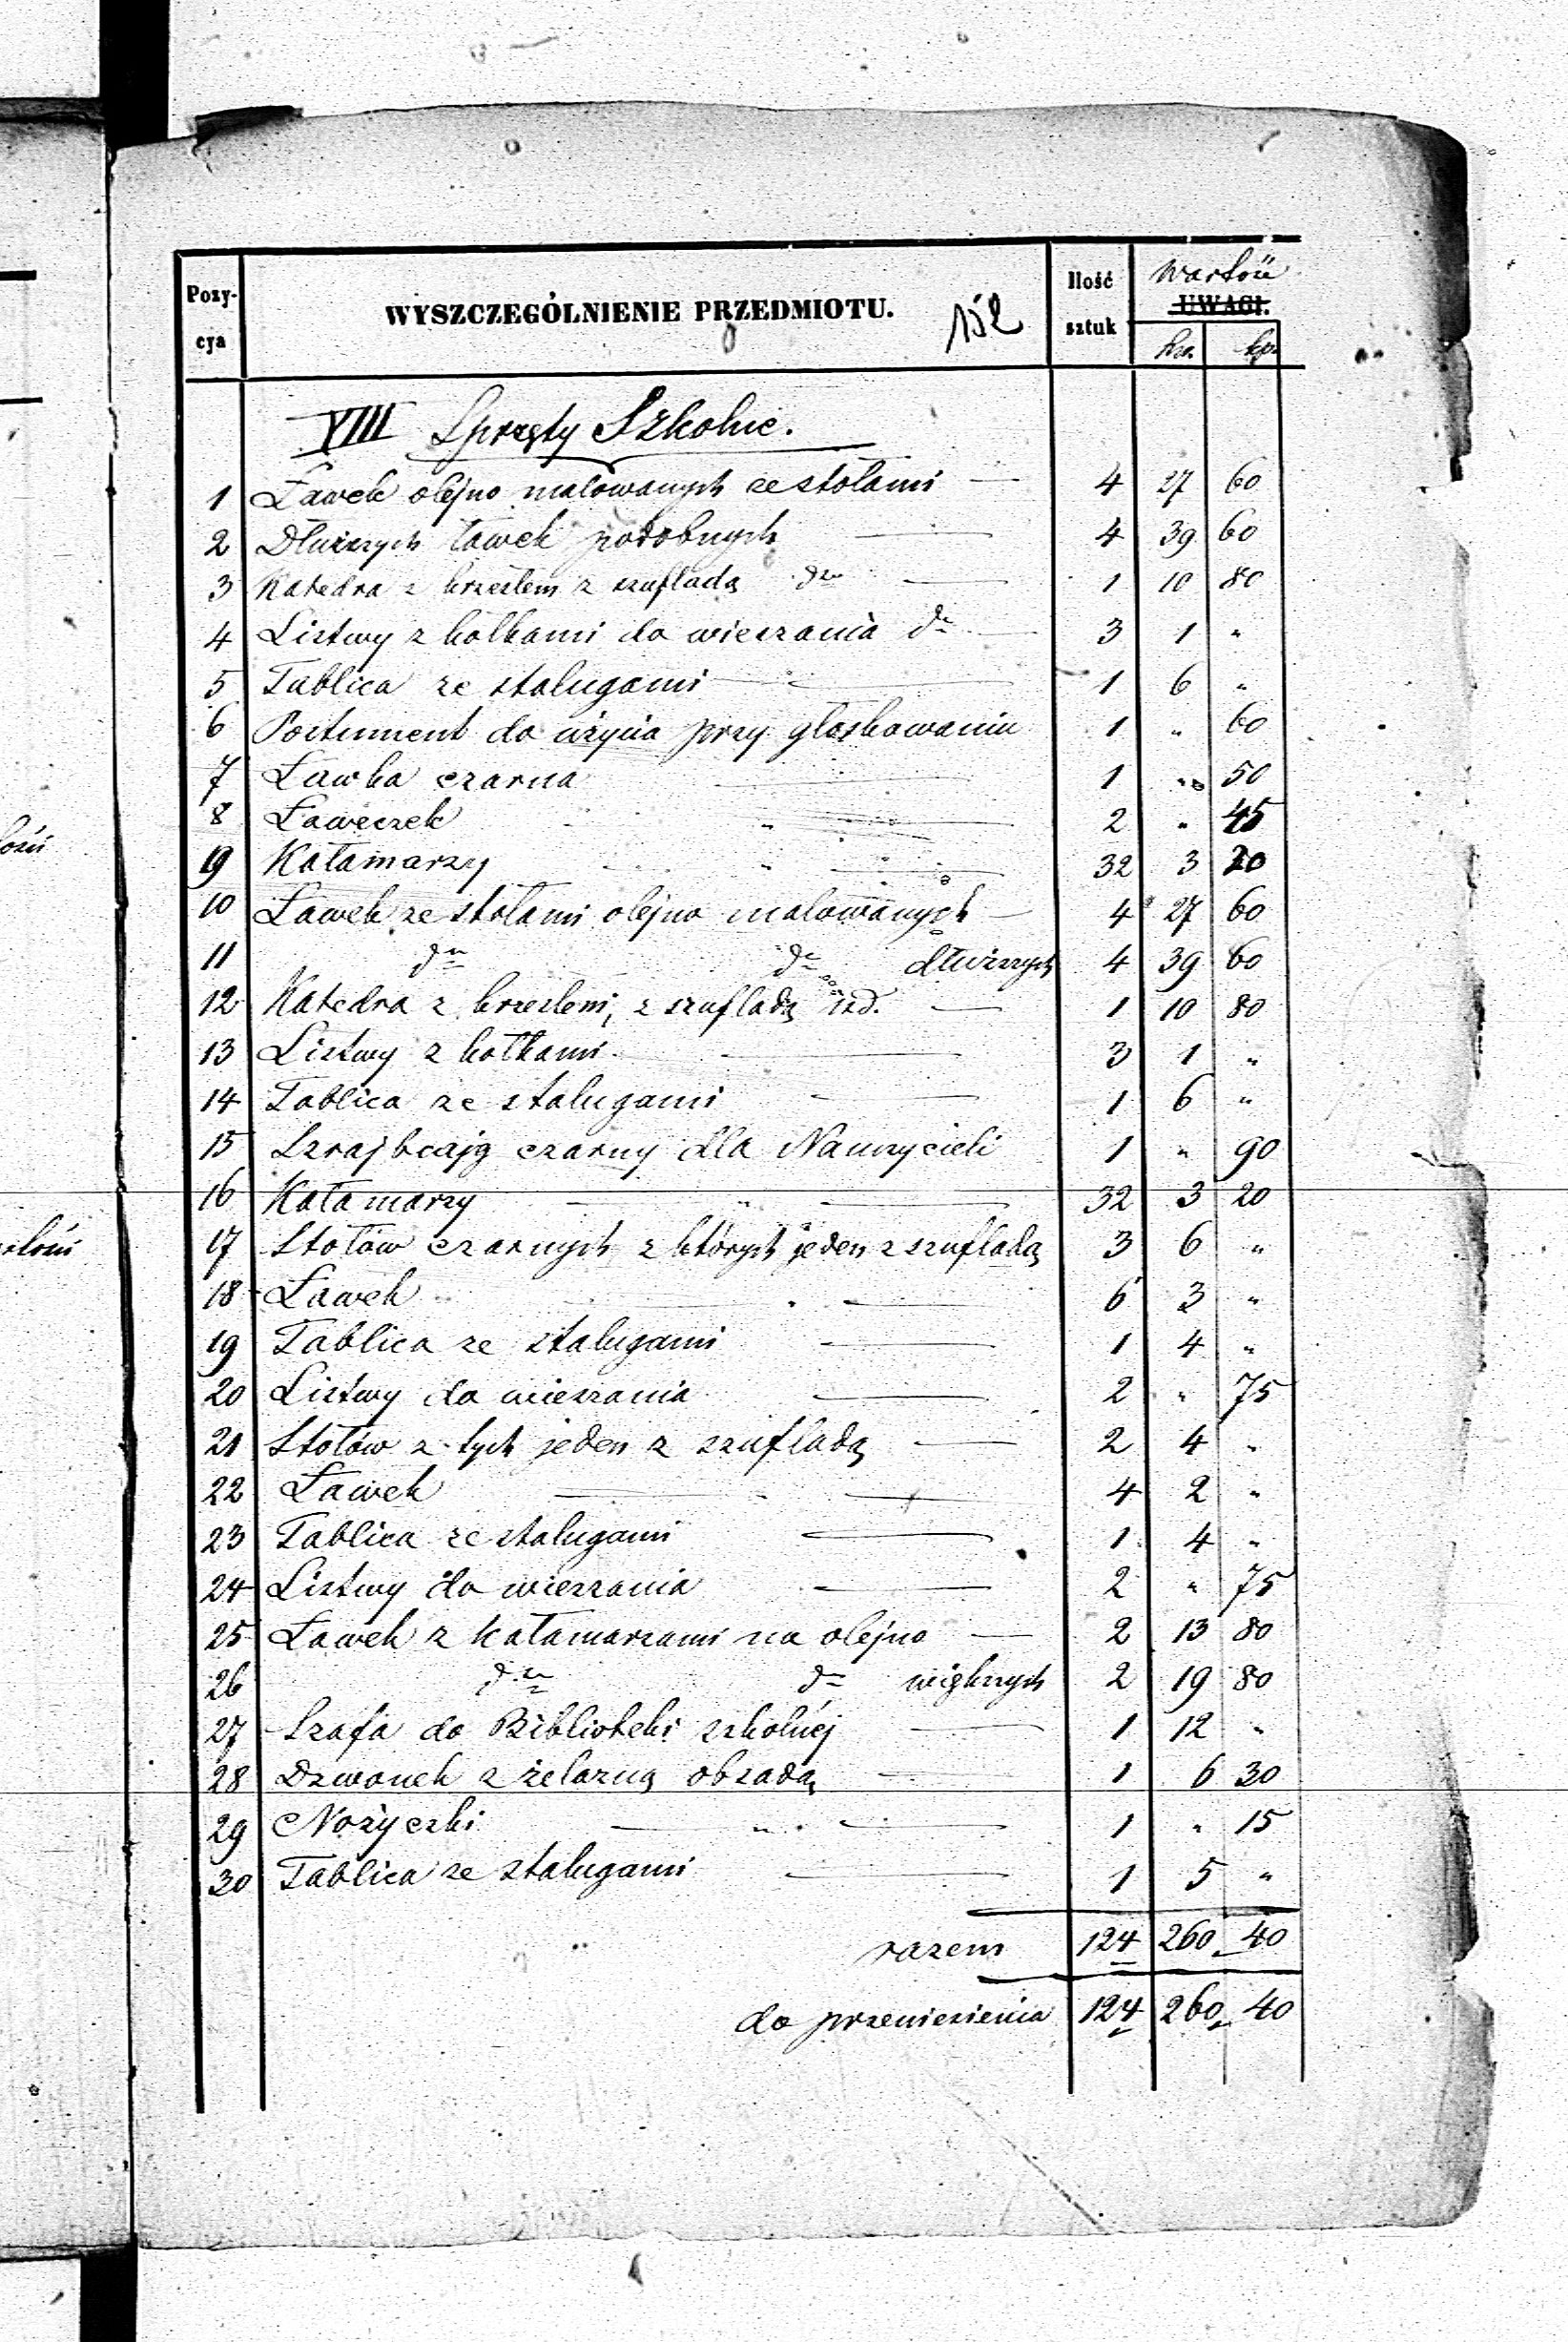 Pozy-cya WYSZCZEGÓLNIENIE PRZEDMIOTU. 152 Ilość sztuk Wartość UWAGI.
kop.
VIII Sprzęty Szkolne.
1 Ławek olejno malowanych ze stołami — 4 27 60
2 Dłuższych ławek podobnych — 4 39 60
3 Katedra z krzesłem z szufladą dto — 1 10 80
4 Listwy z kołkami do wieszania dto — 3 1 "
5 Tablica ze stalugami — 1 6 "
6 Postument do użycia przy głoskowaniu 1 " 60
7 Ławka czarna — 1 " 50
8 Ławeczek " — 2 " 45
9 Kałamarzy " — 32 3 20
10 Ławek ze stołami olejno malowanych — 4 27 60
11 dto dto dłuższych 4 39 60
12 Katedra z krzesłem, z szufladą itd. — 1 10 80
13 Listwy z kołkami — 3 1 "
14 Tablica ze stalugami — 1 6 "
15 Szrajbcajg czarny dla Nauczycieli 1 " 90
16 Kałamarzy — " — 32 3 20
17 Stołów czarnych z których jeden z szufladą 3 6 "
18 Ławek — 6 3 "
19 Tablica ze stalugami — 1 4 "
20 Listwy do wieszania — 2 " 75
21 Stołów z tych jeden z szufladą — 2 4 "
22 Ławek — 4 2 "
23 Tablica ze stalugami — 1 4 "
24 Listwy do wieszania — 2 " 75
25 Ławek z kałamarzami na olejno — 2 13 80
26 dto dto większych 2 19 80
27 Szafa do Biblioteki szkolnéj — 1 12 "
28 Dzwonek z żelazną obsadą — 1 6 30
29 Nożyczki — " — 1 " 15
30 Tablica ze stalugami — 1 5 "
razem 124 260 40
do przeniesienia 124 260 40